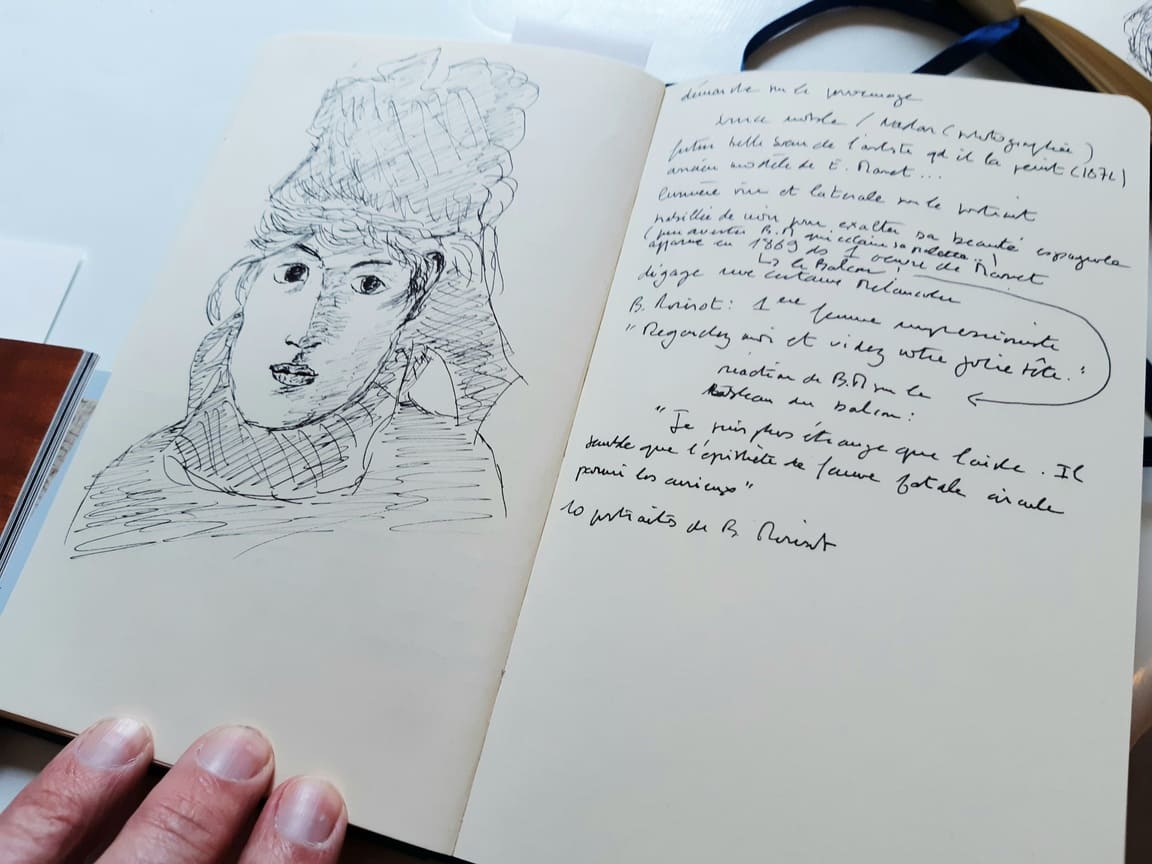 démarche sur le personnage
modèle / Nadar (photographiée)
future belle soeur de l'artiste qd il la peint (1872)
ancien modèle de E. Manet...
lumière vive et latérale sur le portrait
habillée de noir pour exalter sa beauté espagnole
(peu avant B.M qui éclaire sa palette..)
apparue en 1869 ds 1 oeuvre de Manet
↳ le Balcon
dégage une certaine mélancolie
B. Morisot : 1ère femme impressionniste
"Regardez moi et videz votre jolie tête."
réaction de B.M sur le
tableau du balcon :
"Je suis plus étrange que laide. Il
semble que l'épithète de femme fatale circule
parmi les curieux"
10 portraits de B Morisot